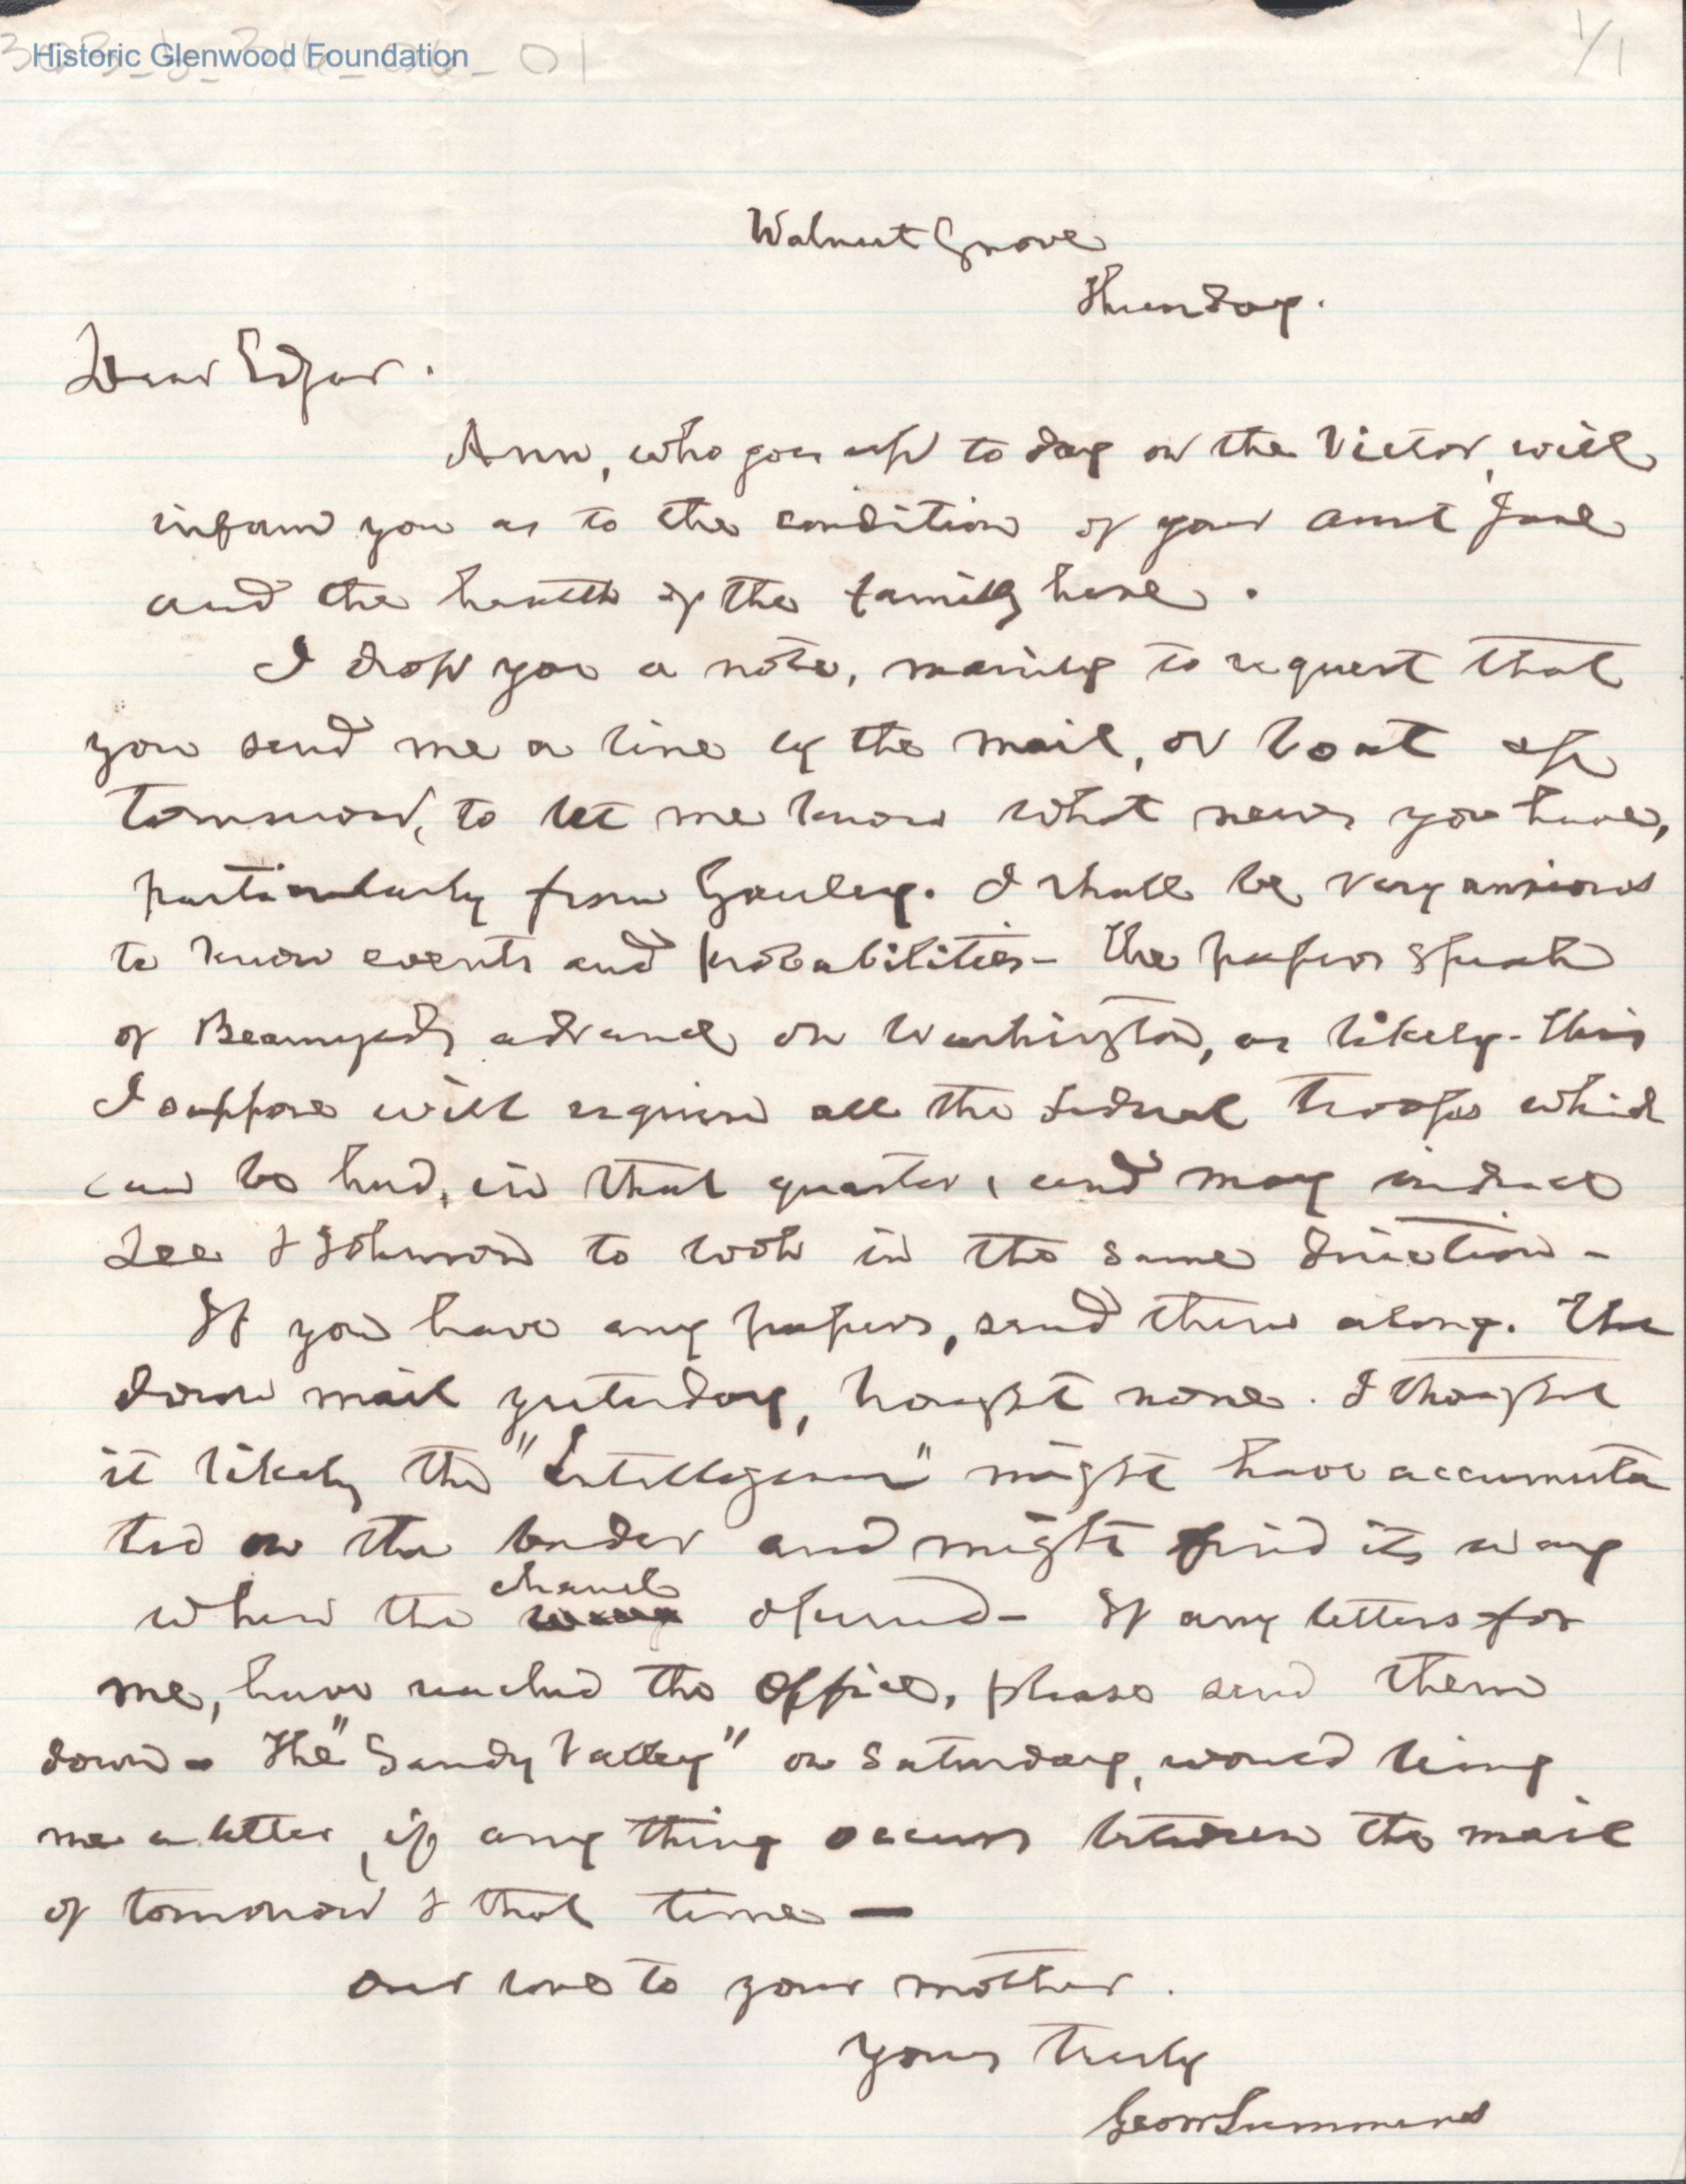 Historic Glenwood Foundation
1/1
Walnut Grove
Thursday.
Dear Edgar.
Ann, who goes up to day on the Victor, will
inform you as to the condition of your aunt Jane
and the health of the family here.
I drop you a note, mainly to request that
you send me a line by the mail, or boat of
tomorrow, to let me know what news you have,
particularly from Gauley. I shall be very anxious
to know events and probabilities - The papers speak
of Beauregards advance on Washington, as likely - this
I suppose will require all the Federal troops which
can be had, in that quarter, and may induce
Lee & Johnson to look in the same direction -
If you have any papers, send them along. The
down mail yesterday, brought none. I thought
it likely the "Intelligencer" might have accumula
ted on the border and might find its way
when the chanel opened - If any letters for
me, have reached the office, please send them
down - The "Sandy Valley" on Saturday, would bring
me a letter, if any thing occurs between the mail
of tomorrow & that time —
Our love to your mother.
Yours truly
Geo W Summers